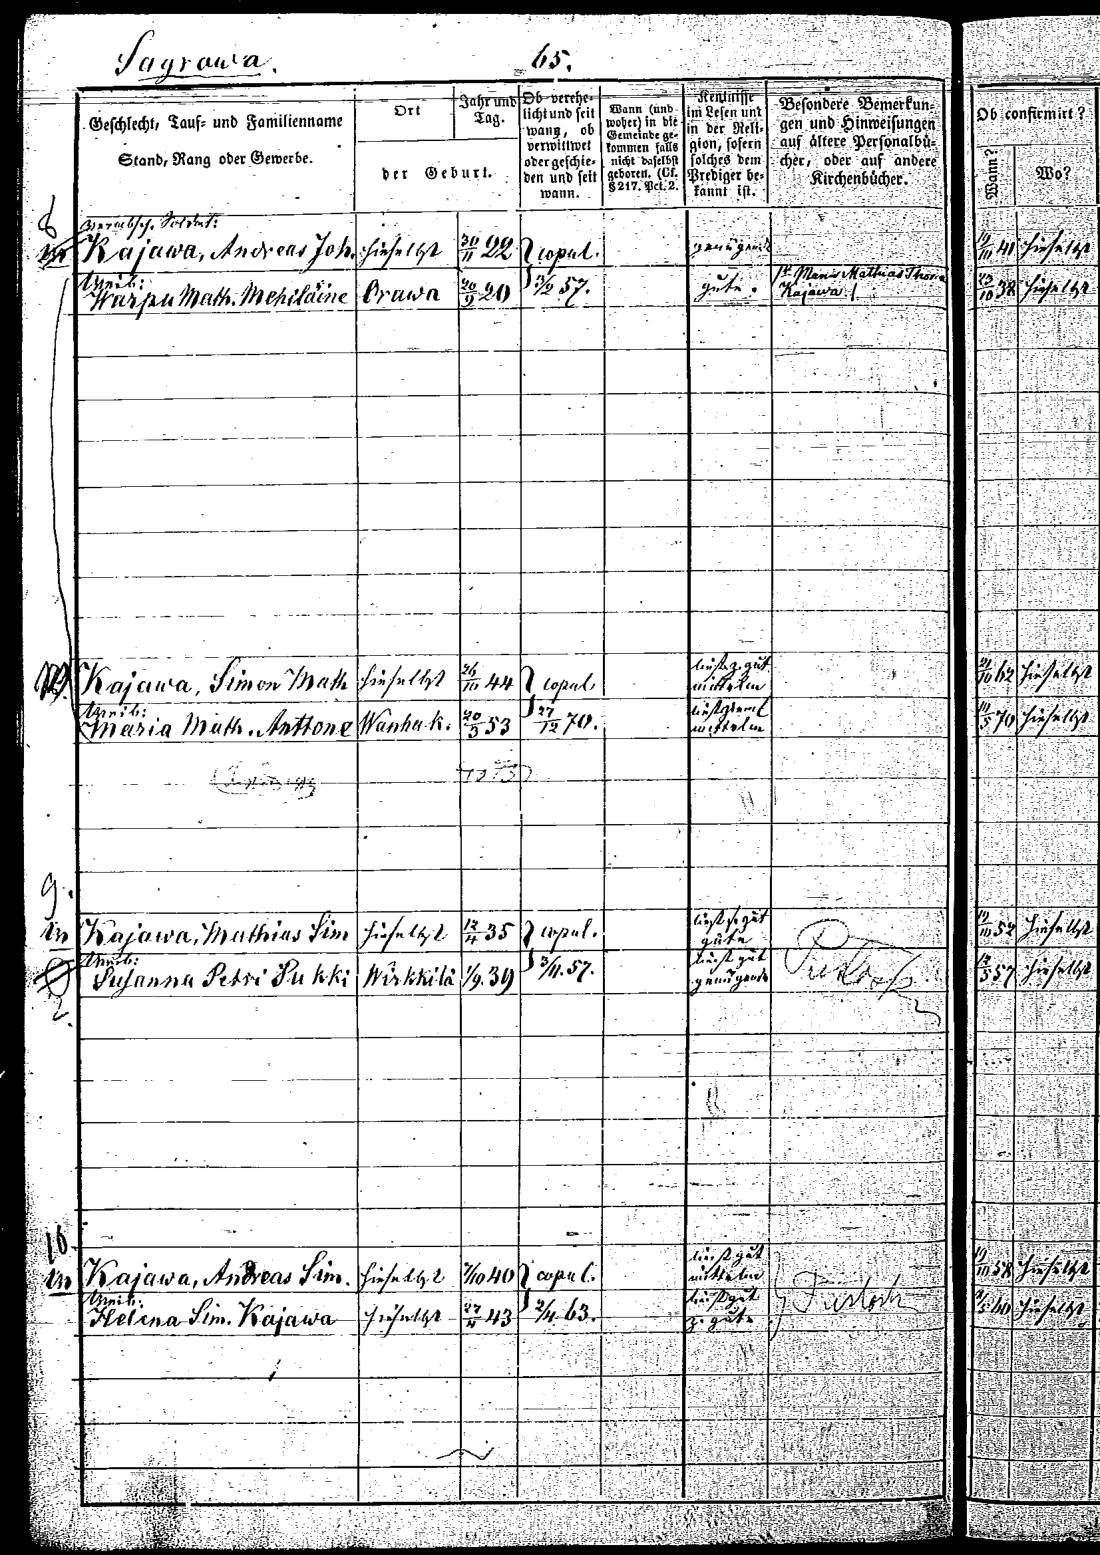 Sagrawa. 65.
Geschlecht, Tauf- und Familienname
Stand, Rang oder Gewerbe.
Ort
Jahr und
Tag.
der Geburt.
Ob verehe-
licht und seit
wann, ob
verwittwet
oder geschie-
den und seit
wann.
Wann (und
woher) in die
Gemeinde ge-
kommen falls
nicht daselbst
geboren. (Cf.
§ 217. Pct. 2.
Kentnisse
im Lesen und
in der Reli-
gion, sofern
solches dem
Prediger be-
kannt ist.
Besondere Bemerkun-
gen und Hinweisungen
auf ältere Personalbü-
cher, oder auf andere
Kirchenbücher.
Ob confirmirt?
Wann?
Wo?
8
verabsch. Soldat:
Kajawa, Andreas Joh. hieselbst 30/11 22 copul. genügend 19/10 41 hieselbst
Weib:
Warpu Math. Mehiläine Orawa 20/9 20 3/2 57. gute. 1r Mann Mathias Thoma 23/10 38 hieselbst
Kajawa
Kajawa, Simon Math hieselbst 26/10 44 copul. liest z. gut 21/10 62 hieselbst
mittelm
Weib:
Maria Math. Anttone Wanhak. 20/3 53 27/12 70. liest 10/5 70 hieselbst
mittelm
9.
Kajawa, Mathias Sim hieselbst 12/4 35 copul. liest z. gut 19/10 52 hieselbst
gute
Weib:
Susanna Petri Pukki Wirkkilä 1/9. 39 3/11. 57. liest gut 12/5 57 hieselbst
genügend
10
Kajawa, Andreas Sim. hieselbst 7/10 40 copul. liest gut 19/10 58 hieselbst
mittelm
Weib:
Helena Sim. Kajawa hieselbst 27/4 43 2/11 63. liest gut 60 hieselbst
z. gute